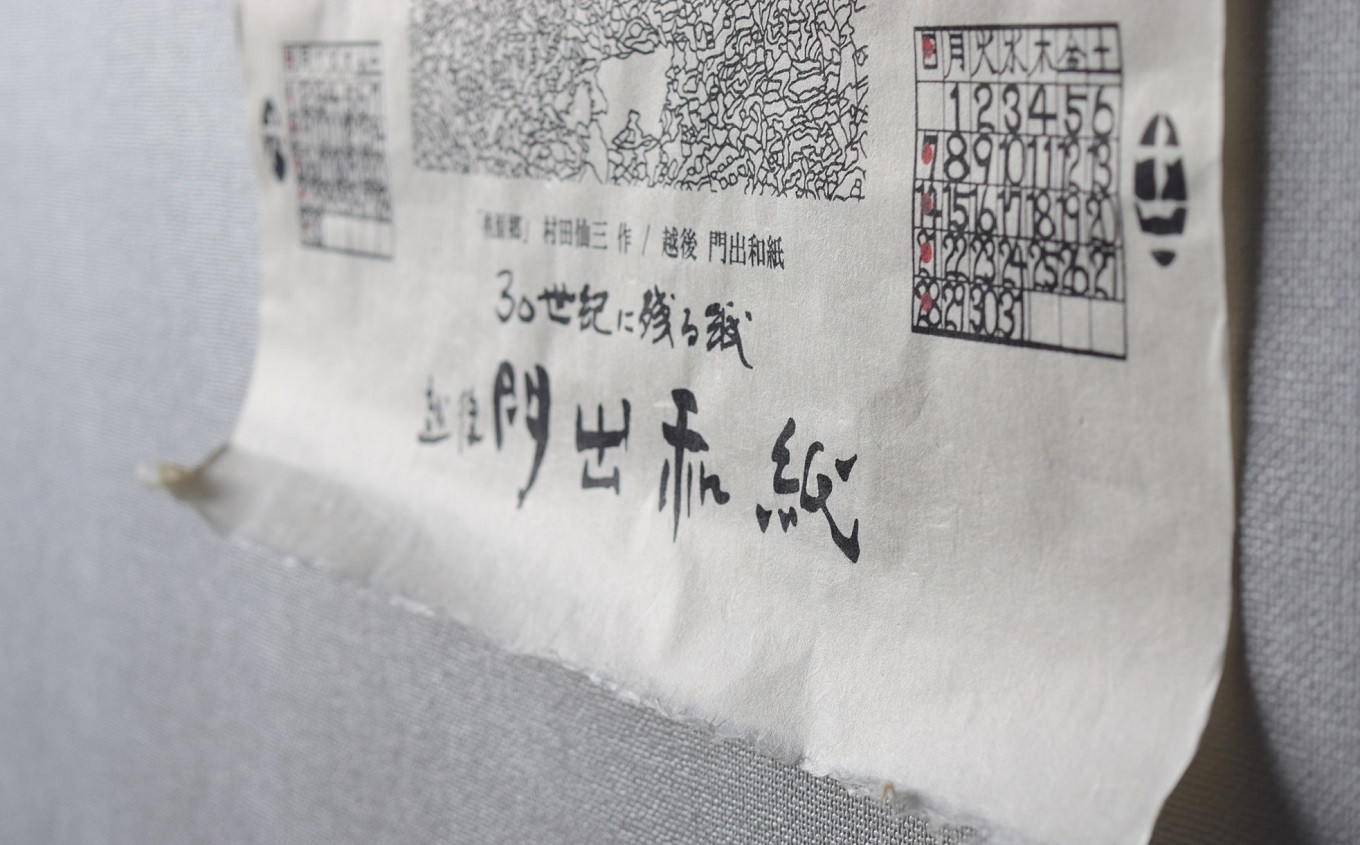 日月火水木金土
1 2 3 4 5 6
7 8 9 10 11 12 13
14 15 16 17 18 19 20
21 22 23 24 25 26 27
28 29 30 31
「桃源郷」 村田仙三 作 / 越後 門出和紙
30世紀に残る紙
越後門出和紙